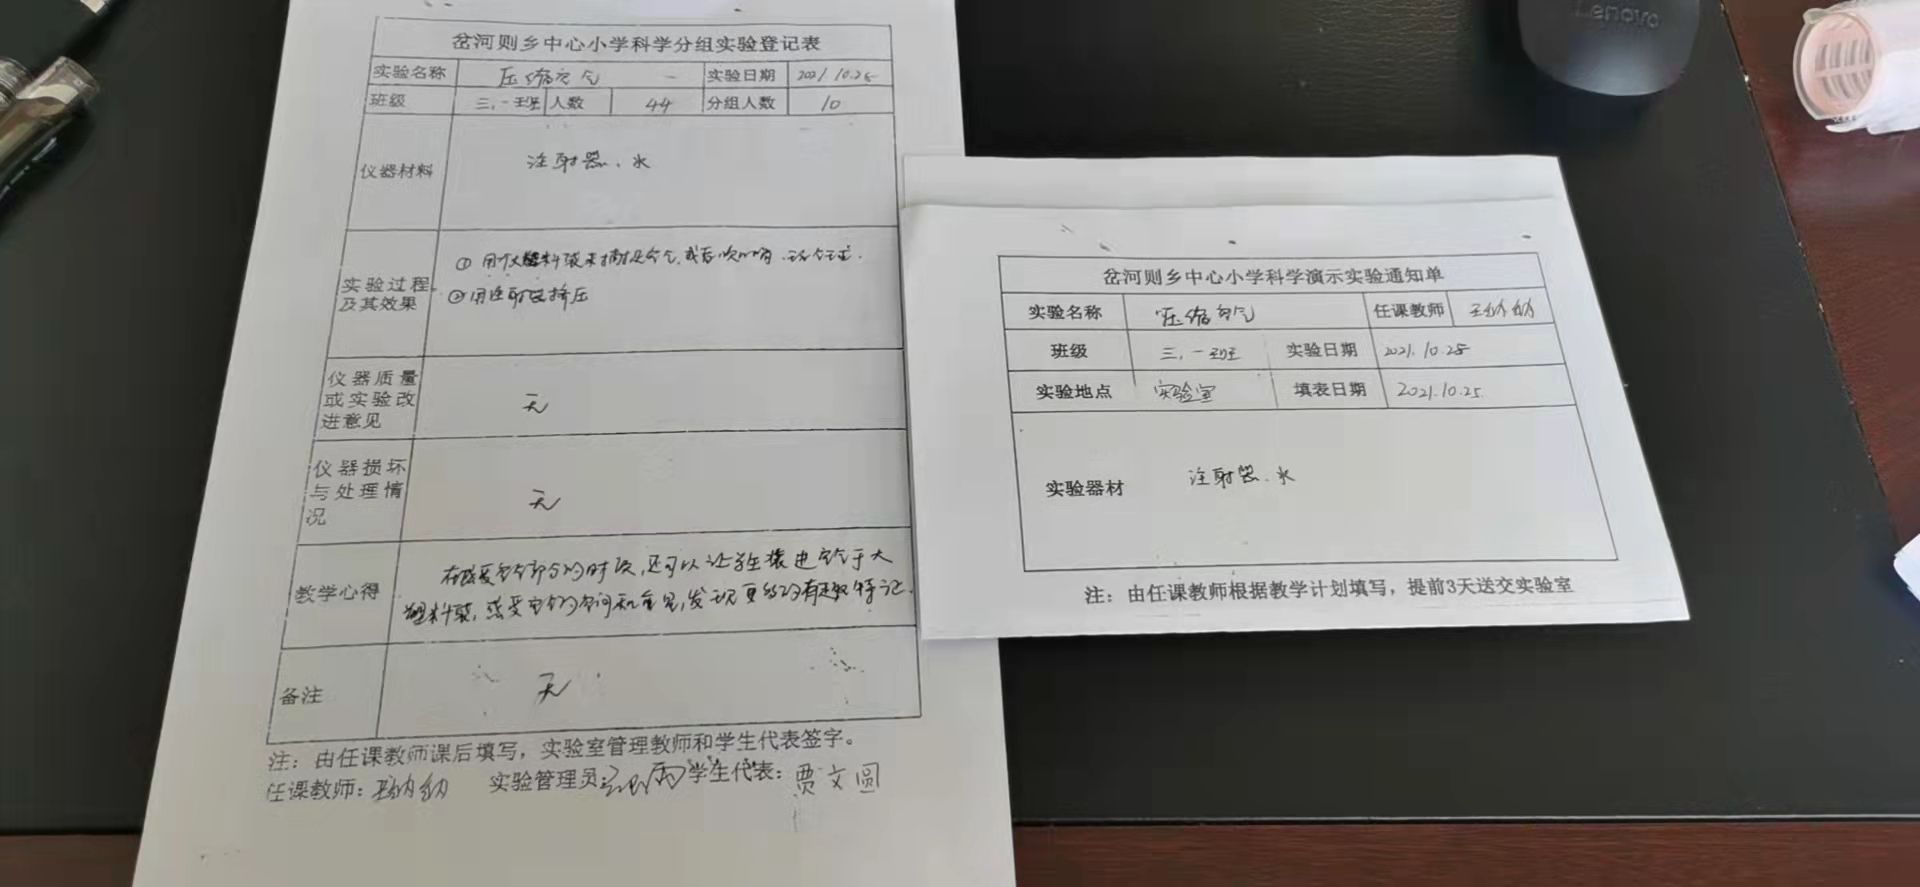 岔河则乡中心小学科学分组实验登记表
实验名称 压缩空气 实验日期 2021.10.28
班级 三.一班 人数 44 分组人数 10
仪器材料 注射器、水
实验过程及其效果
① 用大塑料袋来捕捉空气,或者吹
② 用注射器挤压
仪器质量或实验改进意见 无
仪器损坏与处理情况 无
教学心得
在感受空气 的时候,还可以让学生 大
塑料袋,感受空气的空间和 ,发现更多的有趣特征.
备注 无
注:由任课教师课后填写,实验室管理教师和学生代表签字。
任课教师: 实验管理员: 学生代表:贾文圆
岔河则乡中心小学科学演示实验通知单
实验名称 压缩空气 任课教师
班级 三.一班 实验日期 2021.10.28
实验地点 实验室 填表日期 2021.10.25
实验器材 注射器.水
注:由任课教师根据教学计划填写,提前3天送交实验室
Lenovo